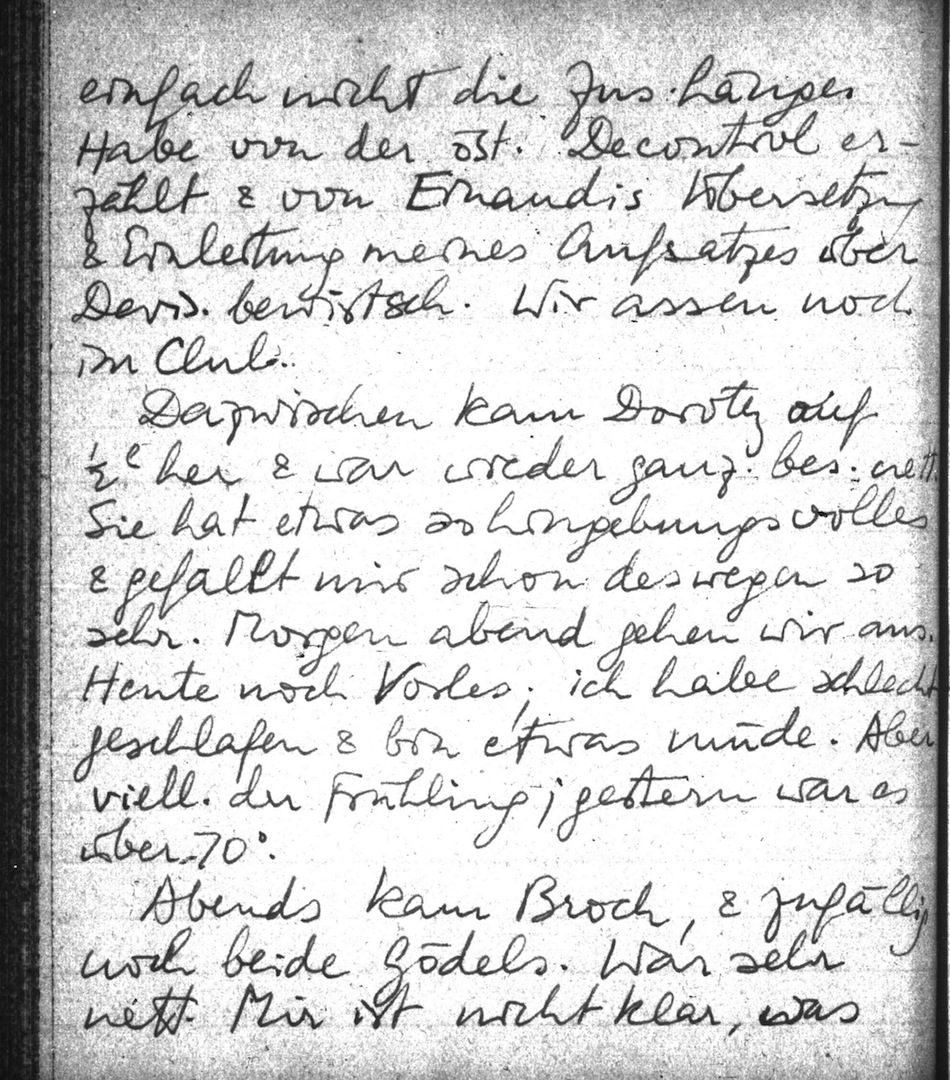 einfach nicht die Zus.hänge.
Habe von der öst. Decontrol er-
zählt & von Einaudis Übersetzung
& Einleitung meines Aufsatzes über
Devis. bewirtsch. Wir assen noch
im Club.
Dazwischen kam Dorothy auf
½ her & war wieder ganz bes. nett.
Sie hat etwas so hingebungsvolles
& gefällt mir schon deswegen so
sehr. Morgen abend gehen wir aus.
Heute noch Vorles; ich habe schlecht
geschlafen & bin etwas müde. Aber
viell. der Frühling; gestern war es
über 70°.
Abends kam Broch, & zufällig
noch beide Gödels. War sehr
nett. Mir ist nicht klar, was